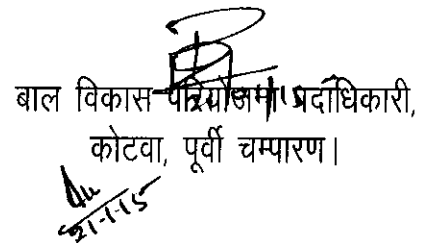 बाल विकास परियोजना पदाधिकारी,
कोटवा, पूर्वी चम्पारण।
21-1-15